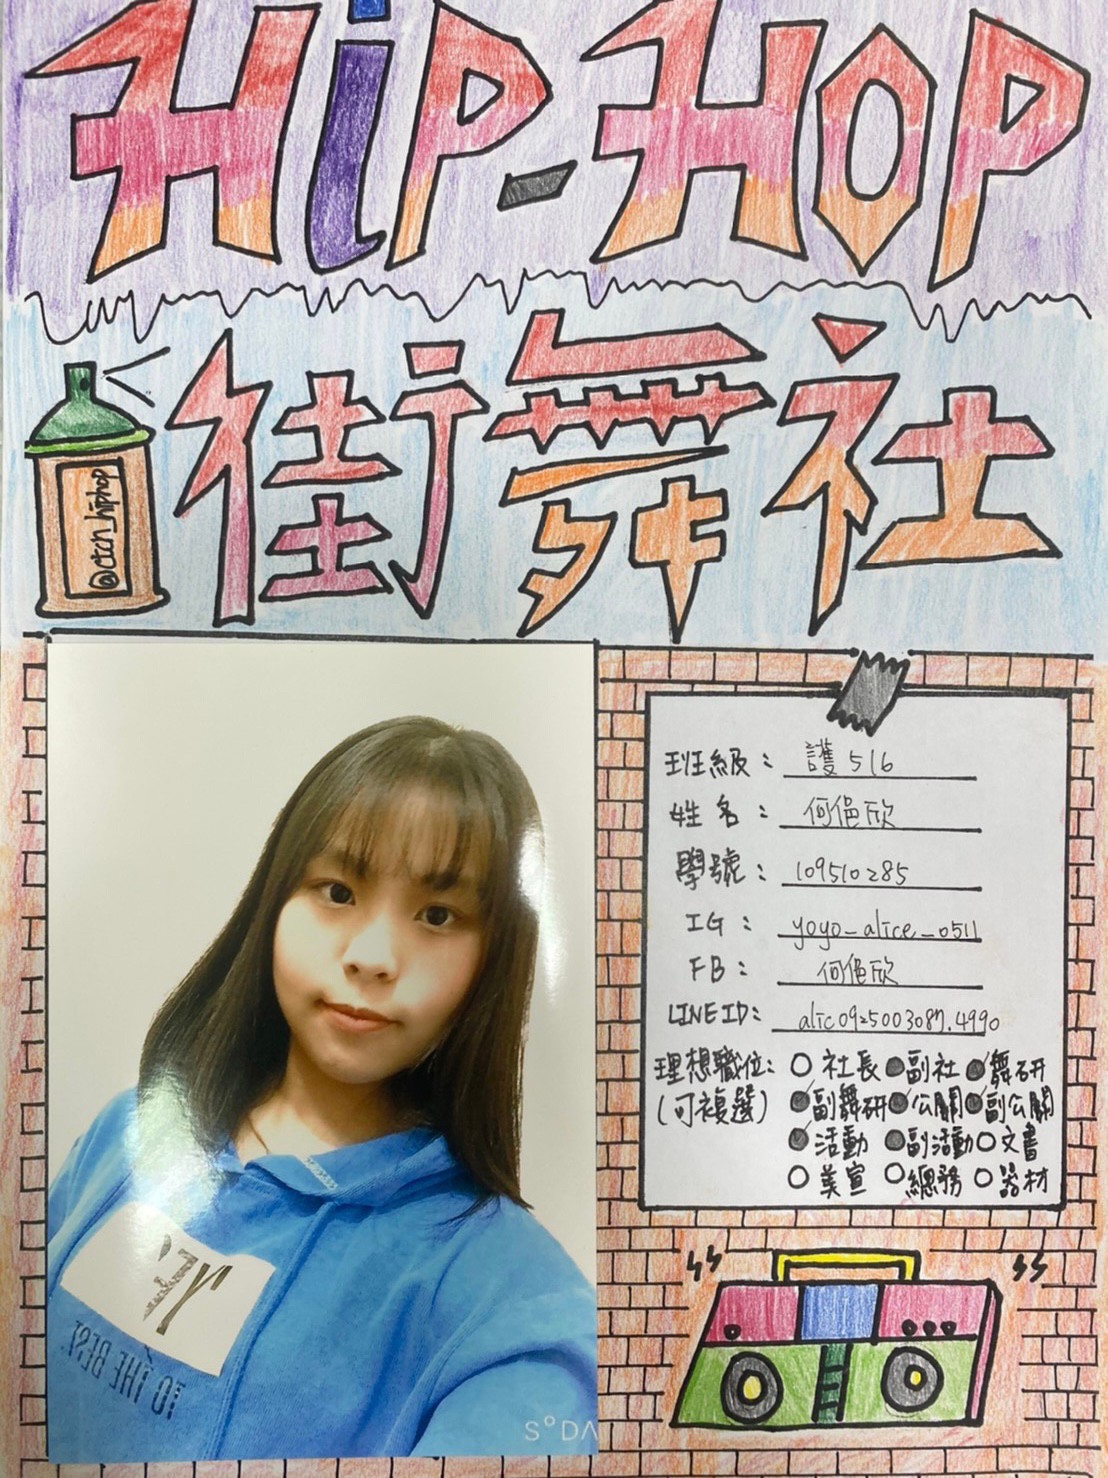 HiP-HOP
街舞社
@ctch_hiphop
班級：護516
姓名：何俋欣
學號：109510285
IG：yoyo_alice_0511
FB：何俋欣
LINE ID：alic0925003087.4990
理想職位：○社長●副社●舞研
(可複選)●副舞研●公關●副公關
●活動●副活動○文書
○美宣○總務○器材
TO THE BEST
SODA